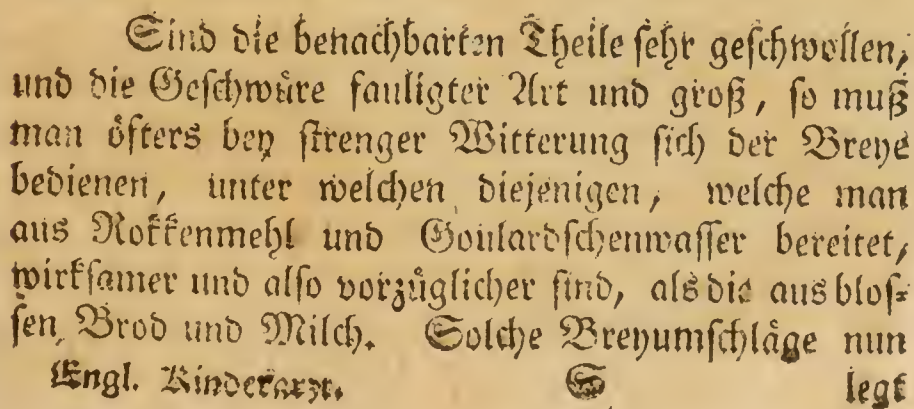 Sind die benachbarten Theile sehr geschwollen,
und die Geschwüre fauligter Art und groß, so muß
man öfters bey strenger Witterung sich der Breye
bedienen, unter welchen diejenigen, welche man
aus Rokkenmehl und Goulardschenwasser bereitet,
wirksamer und also vorzüglicher sind, als die aus blos-
sen Brod und Milch. Solche Breyumschläge nun
Engl. Kinderarzt. S legt